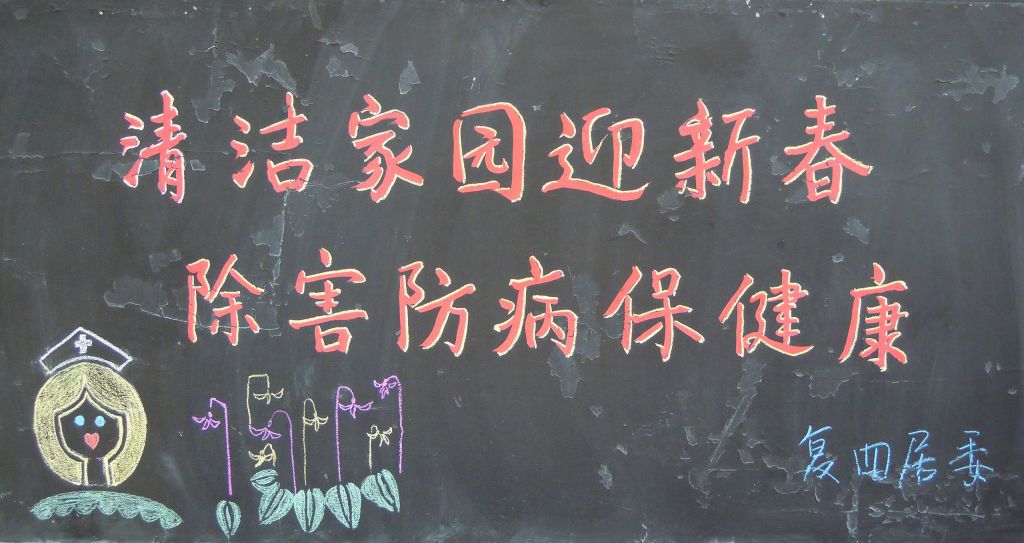 清洁家园迎新春
除害防病保健康
复四居委